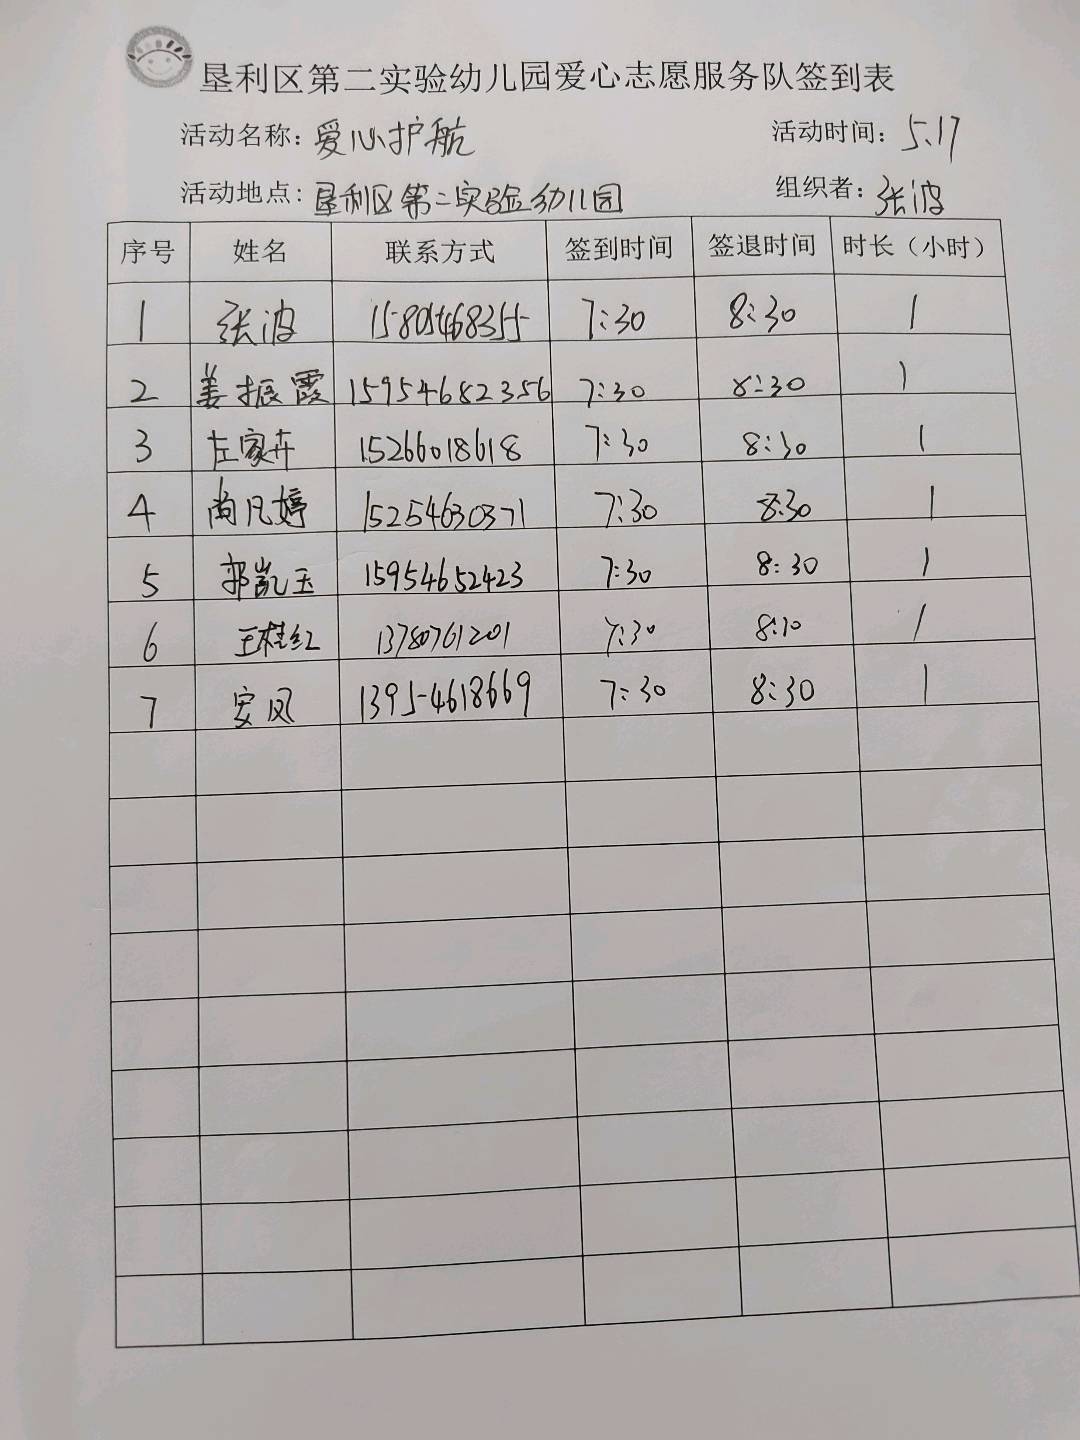 垦利区第二实验幼儿园爱心志愿服务队签到表
活动名称：爱心护航 活动时间：5.17
活动地点：垦利区第二实验幼儿园 组织者：张波
序号 姓名 联系方式 签到时间 签退时间 时长（小时）
1 张波 15805468355 7:30 8:30 1
2 姜振霞 15954682356 7:30 8:30 1
3 左家卉 15266018618 7:30 8:30 1
4 尚凡婷 15254630371 7:30 8:30 1
5 郭凯玉 15954652423 7:30 8:30 1
6 王桂红 13780761201 7:30 8:30 1
7 安风 1395-4618669 7:30 8:30 1